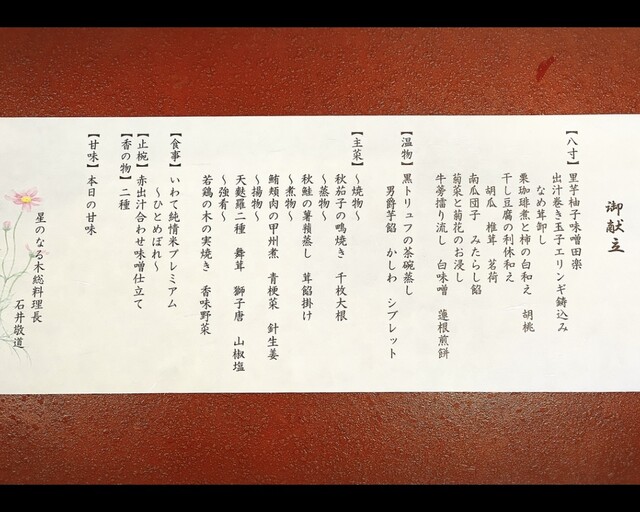 御献立
【八寸】里芋柚子味噌田楽
出汁巻き玉子エリンギ鋳込み
なめ茸卸し
栗珈琲煮と柿の白和え　胡桃
干し豆腐の利休和え
胡瓜　椎茸　茗荷
南瓜団子　みたらし餡
菊菜と菊花のお浸し
牛蒡擂り流し　白味噌　蓮根煎餅
【温物】黒トリュフの茶碗蒸し
男爵芋餡　かしわ　シブレット
【主菜】〜焼物〜
秋茄子の鴫焼き　千枚大根
〜蒸物〜
秋鮭の薯蕷蒸し　茸餡掛け
〜煮物〜
鮪頬肉の甲州煮　青梗菜　針生姜
〜揚物〜
天麩羅二種　舞茸　獅子唐　山椒塩
〜強肴〜
若鶏の木の実焼き　香味野菜
【食事】いわて純情米プレミアム
〜ひとめぼれ〜
【止椀】赤出汁合わせ味噌仕立て
【香の物】二種
【甘味】本日の甘味
星のなる木総料理長
石井敬道